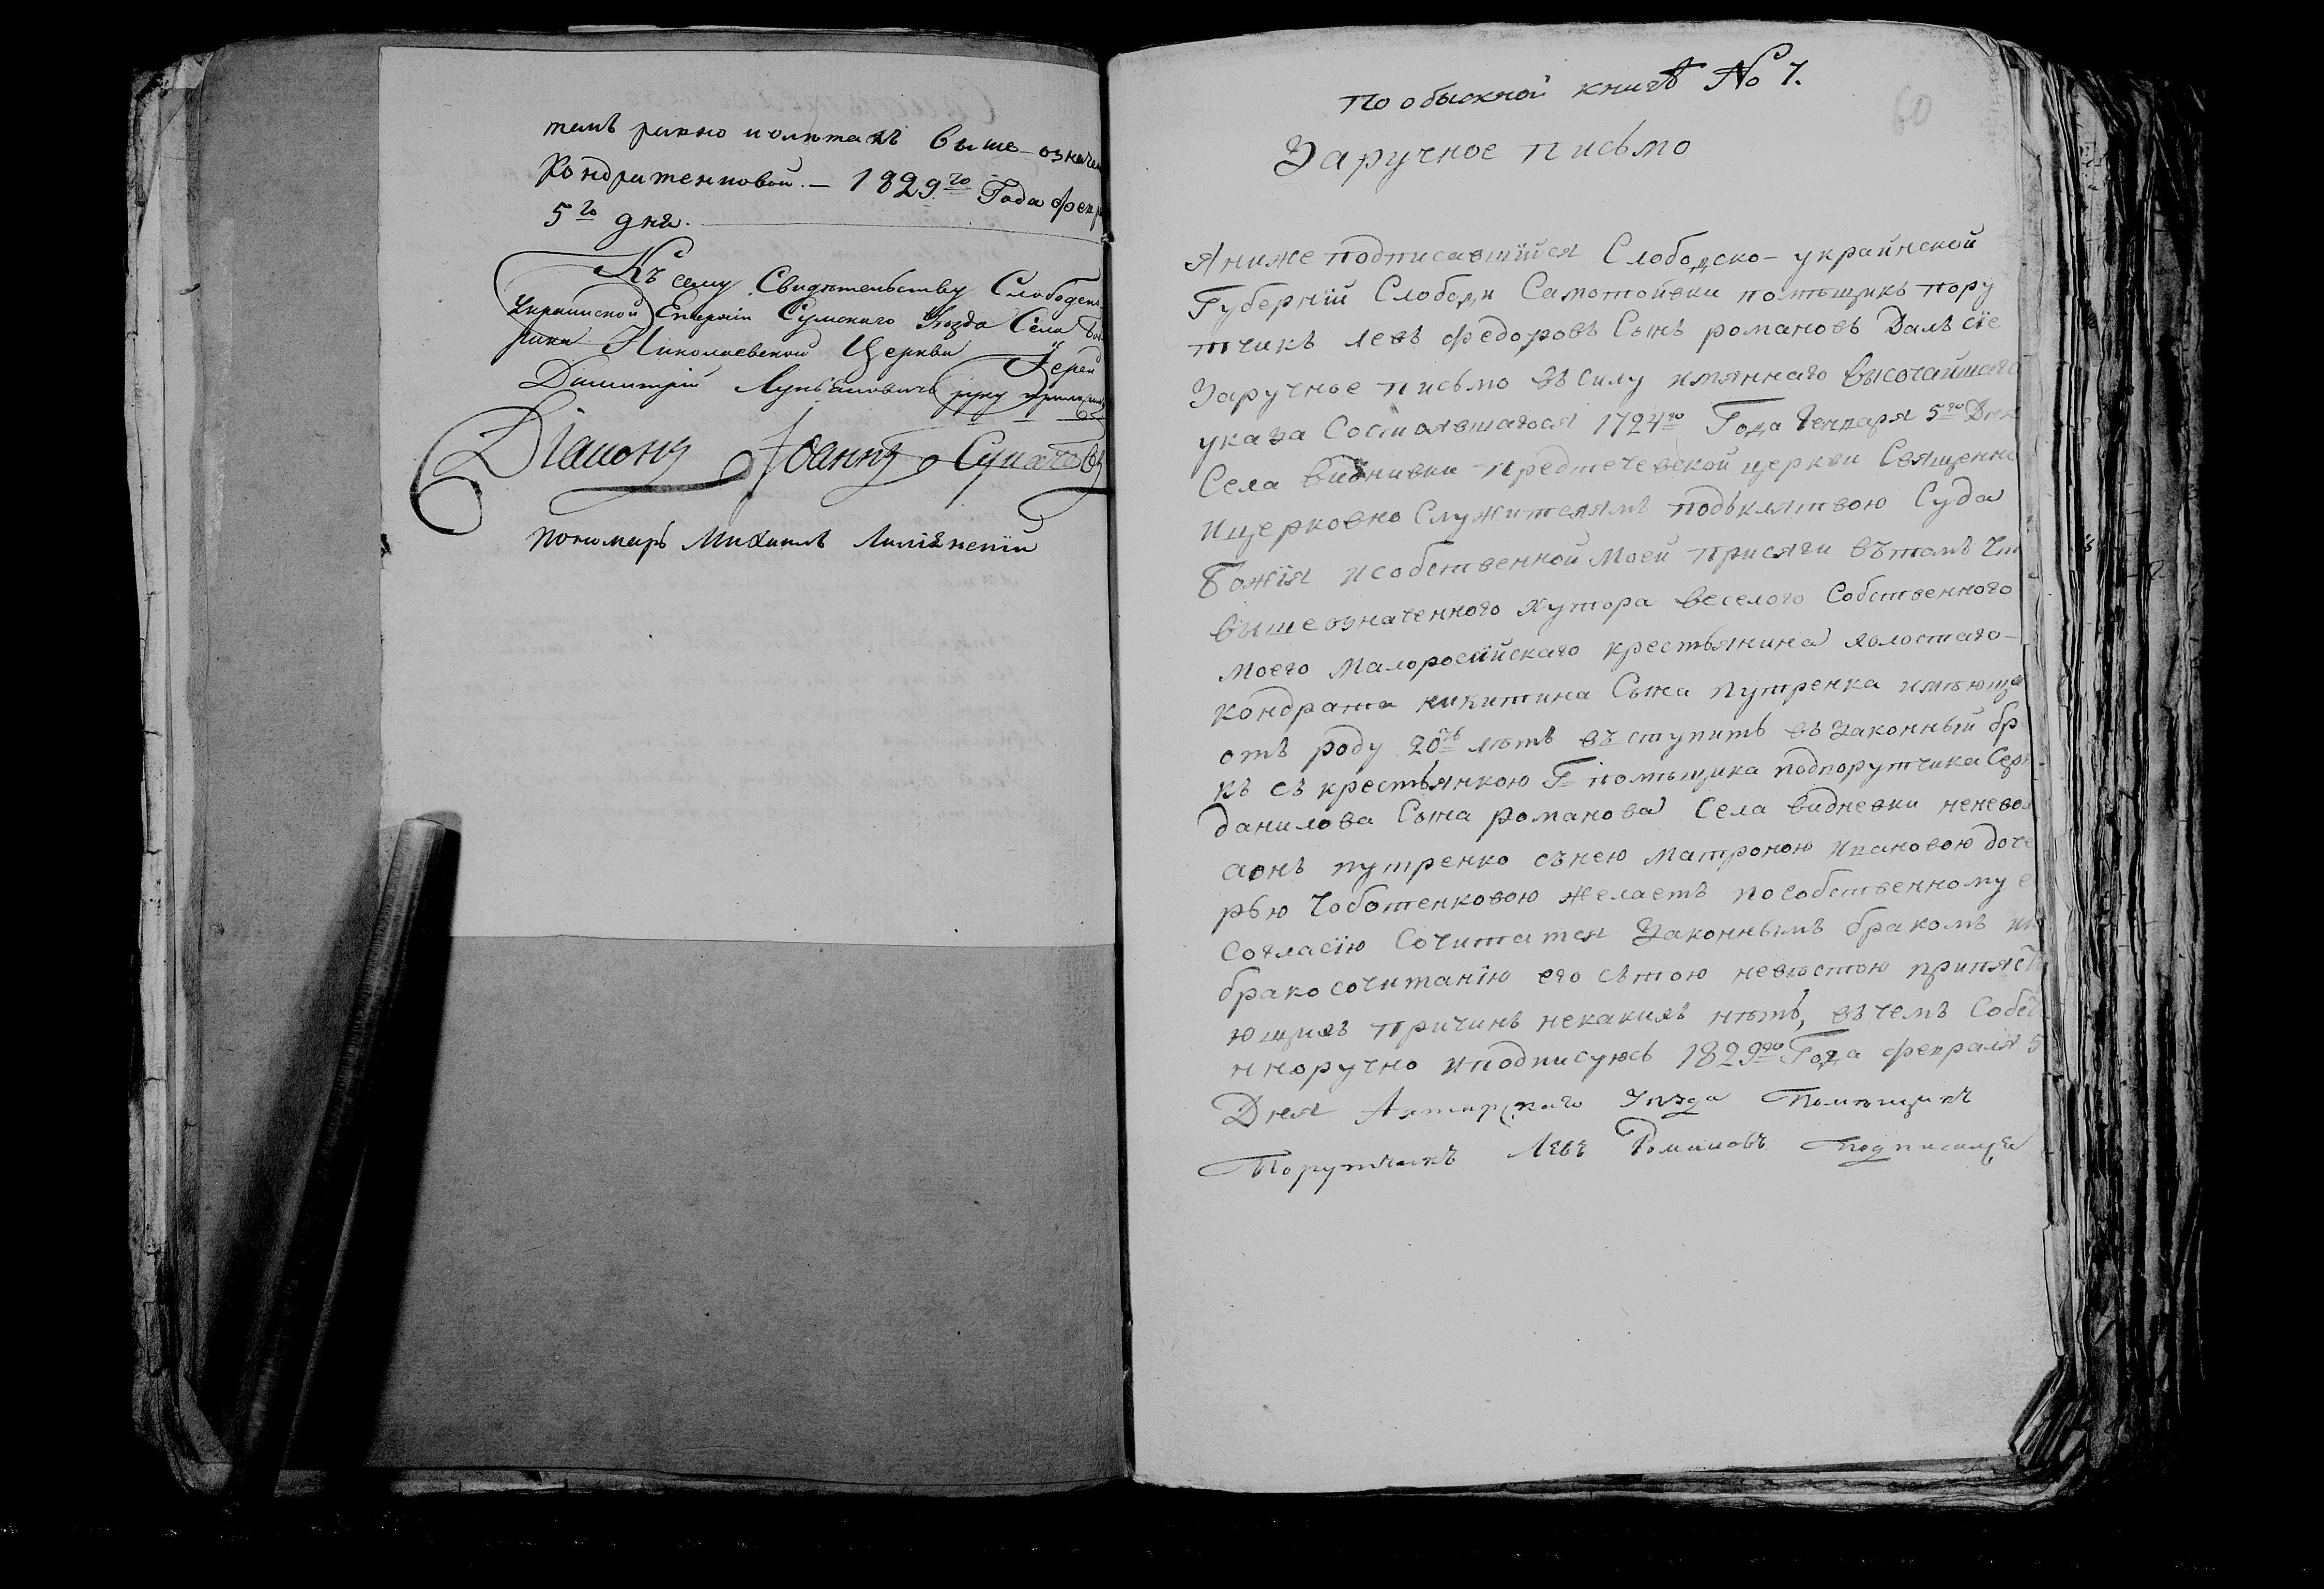 тамъ равно и олѣтахъ выше-означен
Кондратенковой. — 1829го Года февр
5го дня.
Къ сему Свидѣтельству Слободско
Украинской Епархіи Сумскаго Уѣзда Села
Николаевской Церкви Іерей
Димитрій руку приложилъ
Діаконъ Іоаннъ Сукачовъ
пономарь Михаилъ
По обыскной книгѣ № 7.
60
Заручное письмо
Я ниже подписавшійся Слободско-украинской
Губерніи Слободи Самотойвки помѣщикъ пору
тчикъ левъ федоровъ Сынъ романовъ Далъ сіе
Заручное письмо въ силу имяннаго высочайшаго
указа Состоявшагося 1724го Года Генваря 5го Дня
Села видннвки предтечевской церкви Священно
и церковно Служителямъ подъ клятвою Суда
Божія и собственной моей присяги въ томъ Что
выше означенного хутора веселого Собственного
моего малоросийскаго крестьянина холостаго-
кондрата никитина Сына путренка имѣюща
отъ роду 20ть лѣтъ въ ступить въ Законный бр
къ съ крестьянкою Г помѣщика подпорутчика Серг
данилова Сына романова Села видневки неневол
а онъ путренко съ нею матроною ивановою доче
рью Чоботенковою желаетъ по собственному е
согласію Сочитатся Законнымъ бракомъ и к
брако сочитанію его сътою невѣстою припятств
ющихъ причинъ некакихъ нѣтъ, въ чемъ Собст
нноручно и подписуюсь 1829го Года февраля 5
Дня Ахтырскаго Уѣзда Помѣщикъ
Порутчикъ Левъ Романовъ подписался